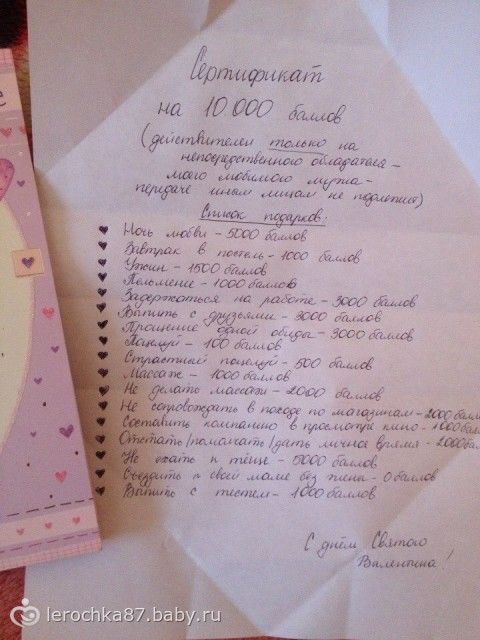 Сертификат
на 10.000 баллов
(действителен только на
непосредственного обладателя -
моего любимого мужа -
передаче иным лицам не подлежит)
Список подарков:
Ночь любви - 5000 баллов
Завтрак в постель - 1000 баллов
Ужин - 1500 баллов
Пельмение - 1000 баллов
Задержаться на работе - 3000 баллов
Выпить с друзьями - 3000 баллов
Прощение одной обиды - 3000 баллов
Поцелуй - 100 баллов
Страстный поцелуй - 500 баллов
Массаж - 1000 баллов
Не делать массаж - 2000 баллов
Не сопровождать в походе по магазинам - 2000 балл
Составить компанию в просмотре кино - 1000 бал
Отстать/помолчать/дать личное время - 2000 бал
Не ехать к тёще - 5000 баллов
Съездить к своей маме без жены - 0 баллов
Выпить с тестем - 1000 баллов
С днём Святого
Валентина!
lerochka87.baby.ru